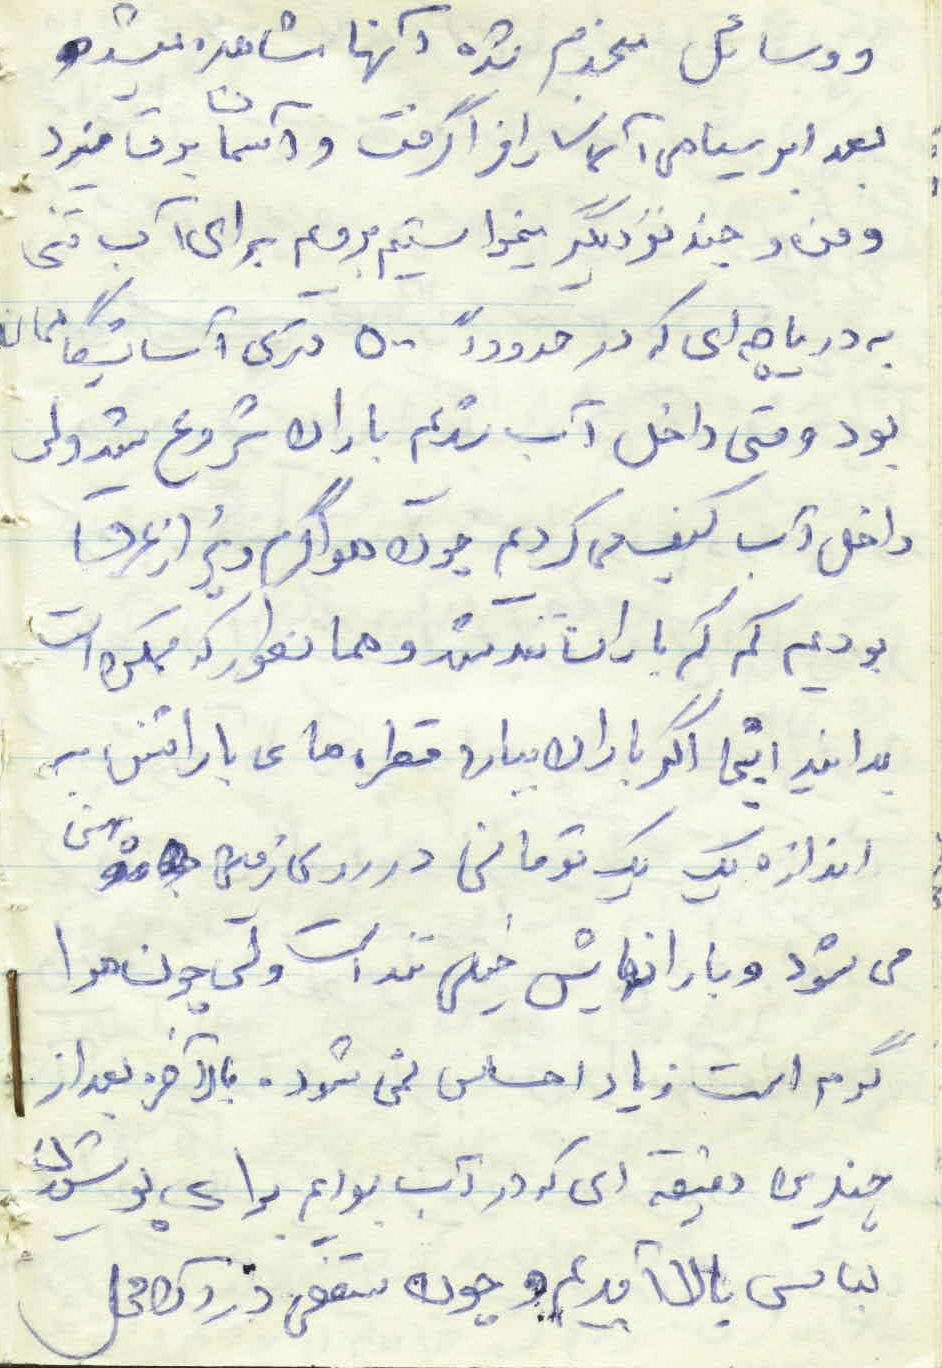 و وسائل منهدم شده آنها مشاهده میشد
بعد ابر سیاهی آسمان را فرا گرفت و آسمان برق میزد
و من و چند نفر دیگر میخواستیم برویم برای آب تنی
به دریاچه‌ای که در حدوداً ۵۰۰ متری آسایشگاهمان
بود وقتی داخل آب شدیم باران شروع شد ولی
داخل آب کیف می‌کردیم چون هوا گرم و پر از عرق
بودیم کم کم باران تند شد و همانطور که ممکن است
بدانید اینجا اگر باران ببارد قطره‌های بارانش به
اندازه یک یک تومانی در روی زمین
می شود و بارانهایش خیلی تند است ولی چون هوا
گرم است زیاد احساس نمی شود. بالاخره بعد از
چندین دقیقه ای که در آب بودیم برای پوشیدن
لباس بالا آمدیم و چون سقفی در آن محل